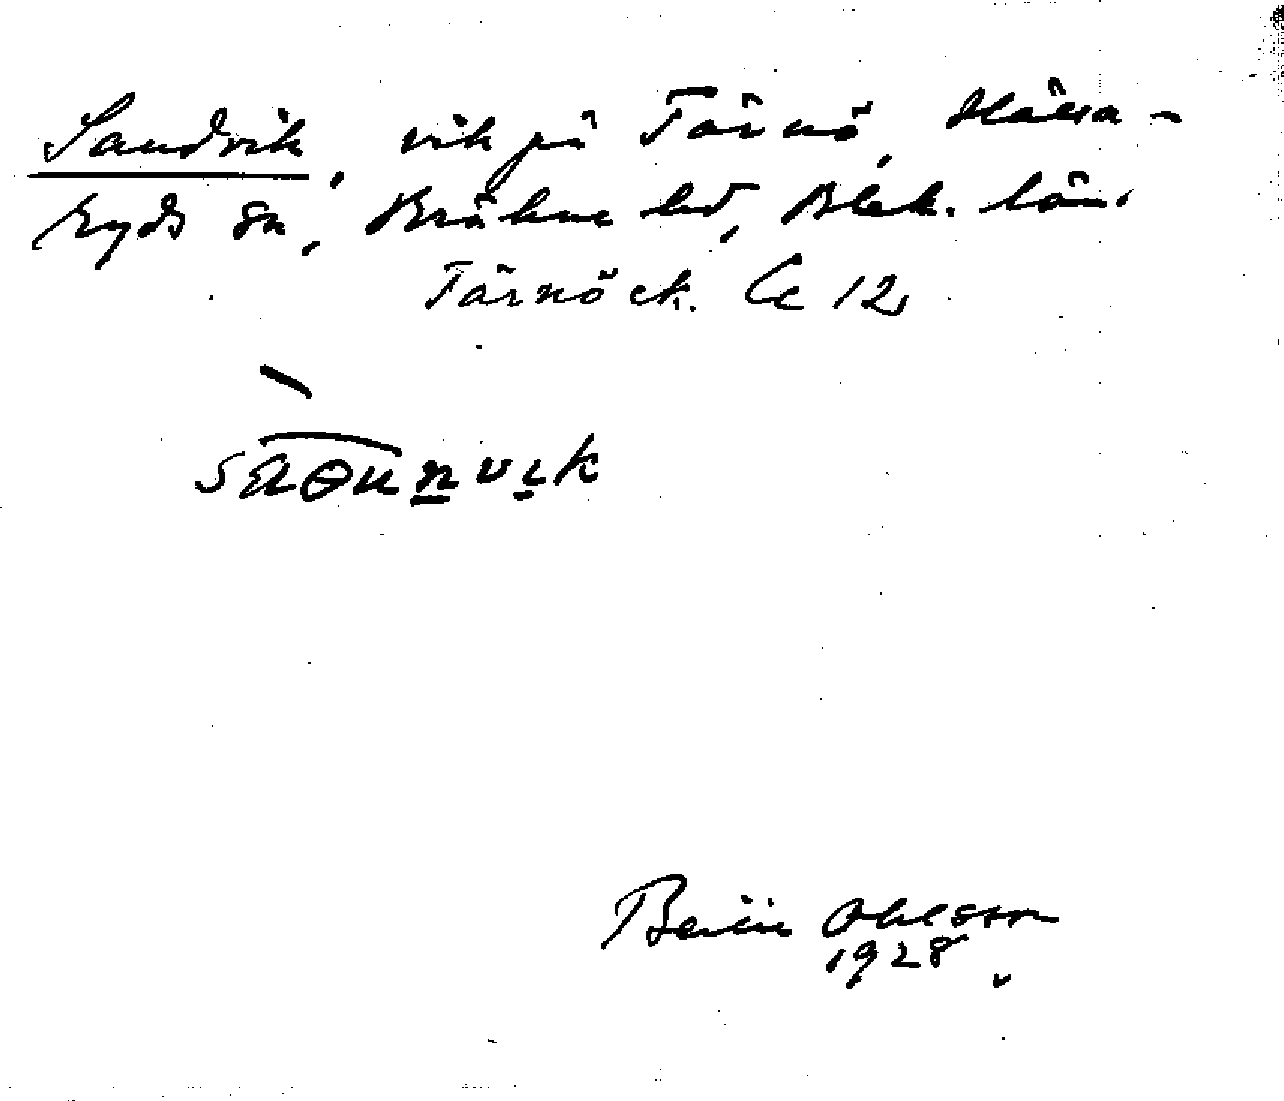 Sandvik, vik på Tärnö, Hälla-
ryds sn, Bräkne hd, Blek. län.
Tärnö ek. Cc 12
Bertil Ohlsson
1928